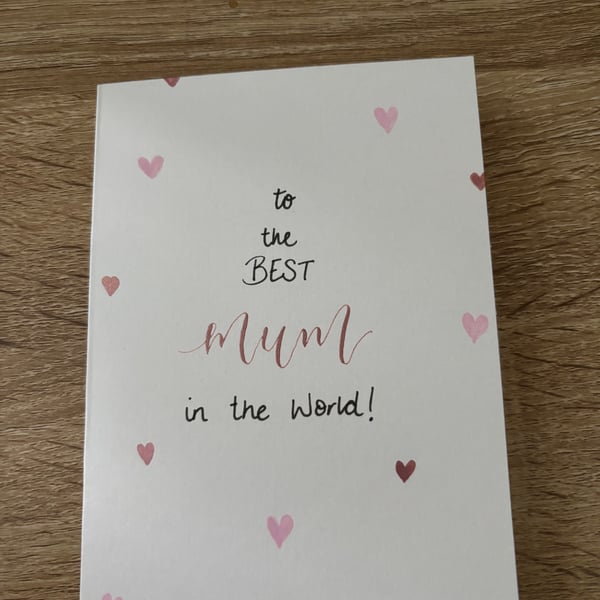 to
the
BEST
mum
in the World!